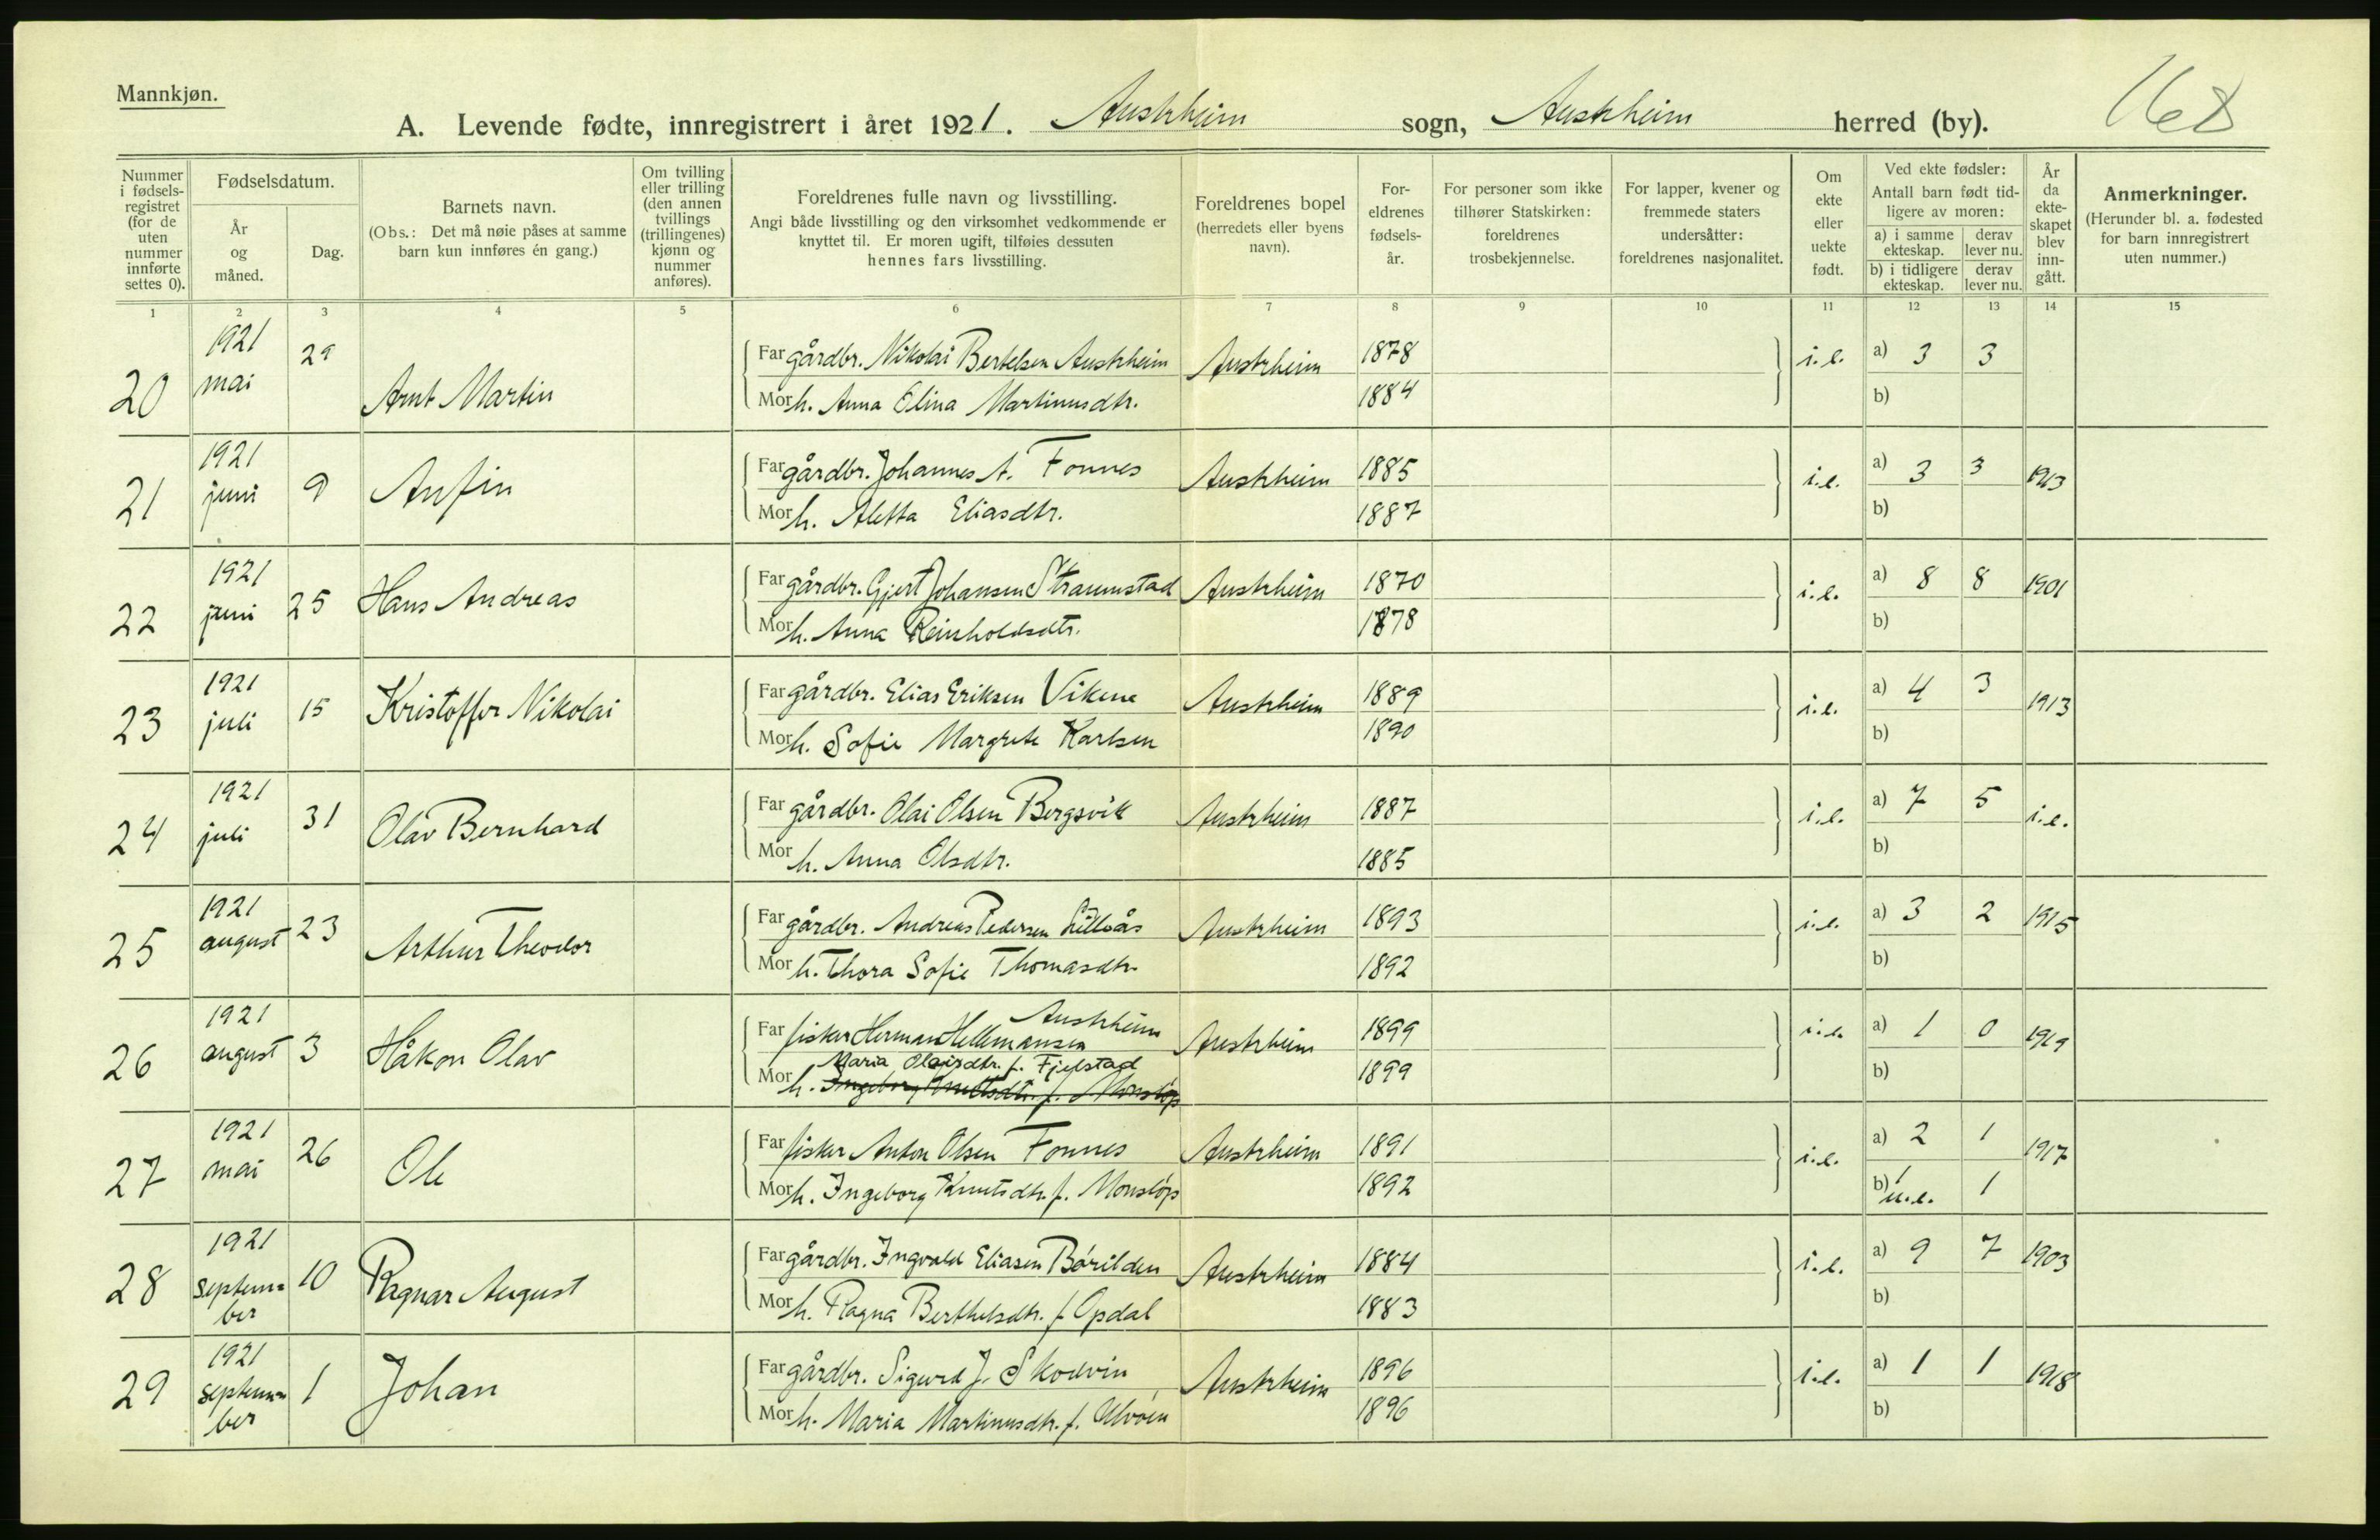 Mannkjøn.
A. Levende fødte, innregistrert i året 1921. Austrheim sogn, Austrheim herred (by).
168
Nummer i fødsels-registret (for de uten nummer innførte settes 0).
Fødselsdatum.
År og måned.
Dag.
Barnets navn.
(Obs.: Det må nøie påses at samme barn kun innføres én gang.)
Om tvilling eller trilling (den annen tvillings (trillingenes) kjønn og nummer anføres).
Foreldrenes fulle navn og livsstilling.
Angi både livsstilling og den virksomhet vedkommende er knyttet til. Er moren ugift, tilføies dessuten hennes fars livsstilling.
Foreldrenes bopel (herredets eller byens navn).
For-eldrenes fødsels-år.
For personer som ikke tilhører Statskirken: foreldrenes trosbekjennelse.
For lapper, kvener og fremmede staters undersåtter: foreldrenes nasjonalitet.
Om ekte eller uekte født.
Ved ekte fødsler:
Antall barn født tid-ligere av moren:
a) i samme ekteskap. derav lever nu.
b) i tidligere ekteskap. derav lever nu.
År da ekte-skapet blev inn-gått.
Anmerkninger.
(Herunder bl. a. fødested for barn innregistrert uten nummer.)
1 2 3 4 5 6 7 8 9 10 11 12 13 14 15
20 1921 mai 29 Arnt Martin Far gårdbr. Nikolai Bertelsen Austrheim Austrheim 1878 i.e. a) 3 3
Mor h. Anna Elina Martinusdtr. 1884 b)
21 1921 juni 9 Anfin Far gårdbr. Johannes A. Fonnes Austrheim 1885 i.e. a) 3 3 1913
Mor h. Aletta Eliasdtr. 1887 b)
22 1921 juni 25 Hans Andreas Far gårdbr. Gjert Johansen Straumstad Austrheim 1870 i.e. a) 8 8 1901
Mor h. Anna Reinholdsdtr. 1878 b)
23 1921 juli 15 Kristoffer Nikolai Far gårdbr. Elias Eriksen Vikene Austrheim 1889 i.e. a) 4 3 1913
Mor h. Sofie Margrete Karlsen 1890 b)
24 1921 juli 31 Olav Bernhard Far gårdbr. Olai Olsen Bergsvik Austrheim 1887 i.e. a) 7 5 i.e.
Mor h. Anna Olsdtr. 1885 b)
25 1921 august 23 Arthur Theodor Far gårdbr. Andreas Pedersen Lillås Austrheim 1893 i.e. a) 3 2 1915
Mor h. Thora Sofie Thomasdtr. 1892 b)
26 1921 august 3 Håkon Olav Far fisker Herman Hellemansen Austrheim Austrheim 1899 i.e. a) 1 0 1919
Maria Olaisdtr. f. Fjelstad
Mor h. Ingeborg Knutsdtr. f. Monsløp 1899 b)
27 1921 mai 26 Ole Far fisker Anton Olsen Fonnes Austrheim 1891 i.e. a) 2 1 1917
Mor h. Ingeborg Knutsdtr. f. Monsløp 1892 b) 1 u.e. 1
28 1921 septem-ber 10 Ragnar August Far gårdbr. Ingvald Eliasen Børilden Austrheim 1884 i.e. a) 9 7 1903
Mor h. Ragna Berthelsdtr. f. Opdal 1883 b)
29 1921 septem-ber 1 Johan Far gårdbr. Sigurd J. Skodvin Austrheim 1896 i.e. a) 1 1 1918
Mor h. Maria Martinusdtr. f. Ulvøen 1896 b)